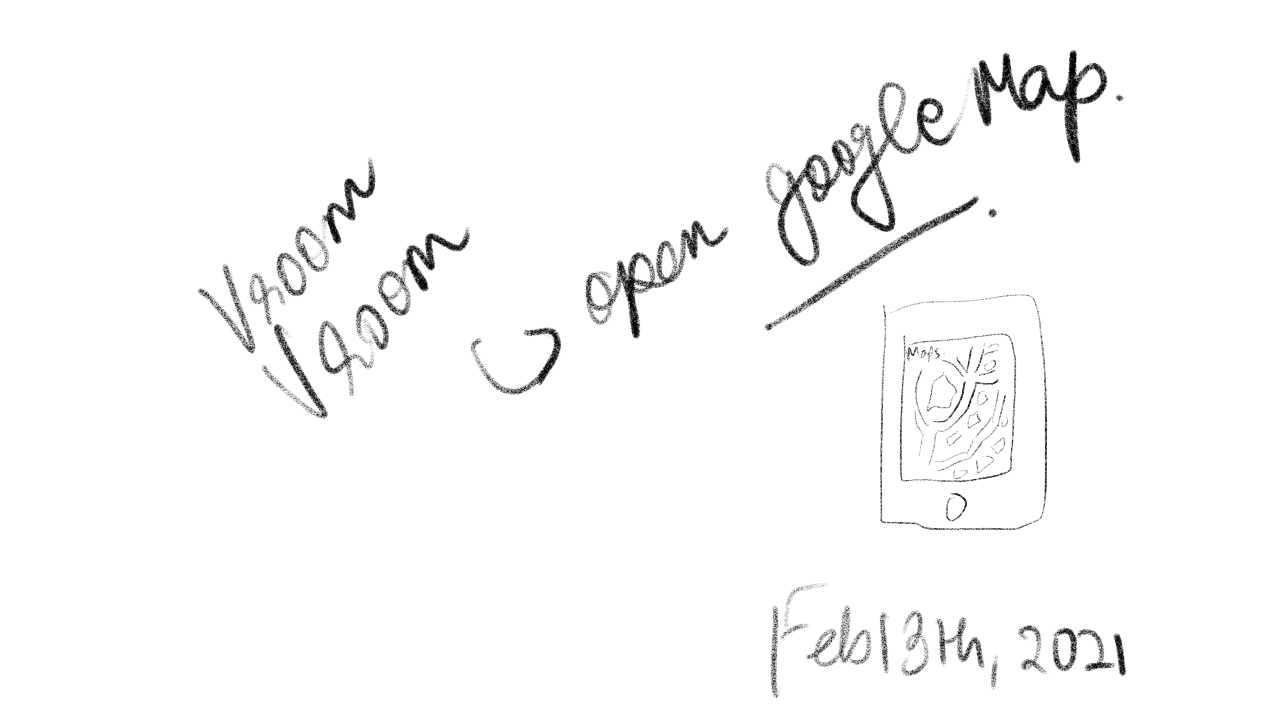 Vroom
Vroom
open google Map.
Maps
Feb 13th, 2021